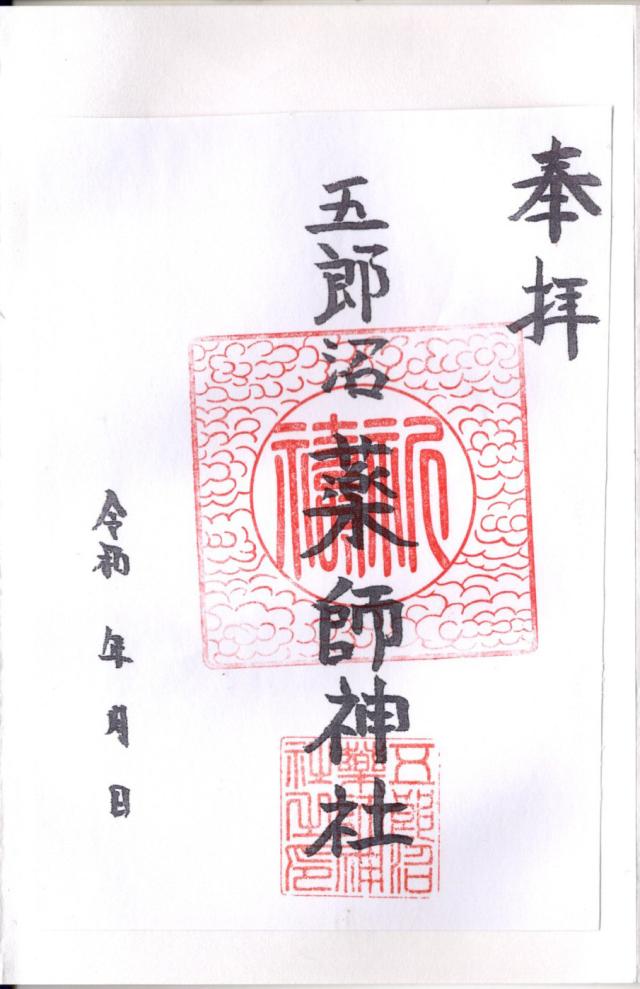 奉拝
五郎沼薬師神社
祈禱
五郎沼
薬師神
社之印
令和 年 月 日